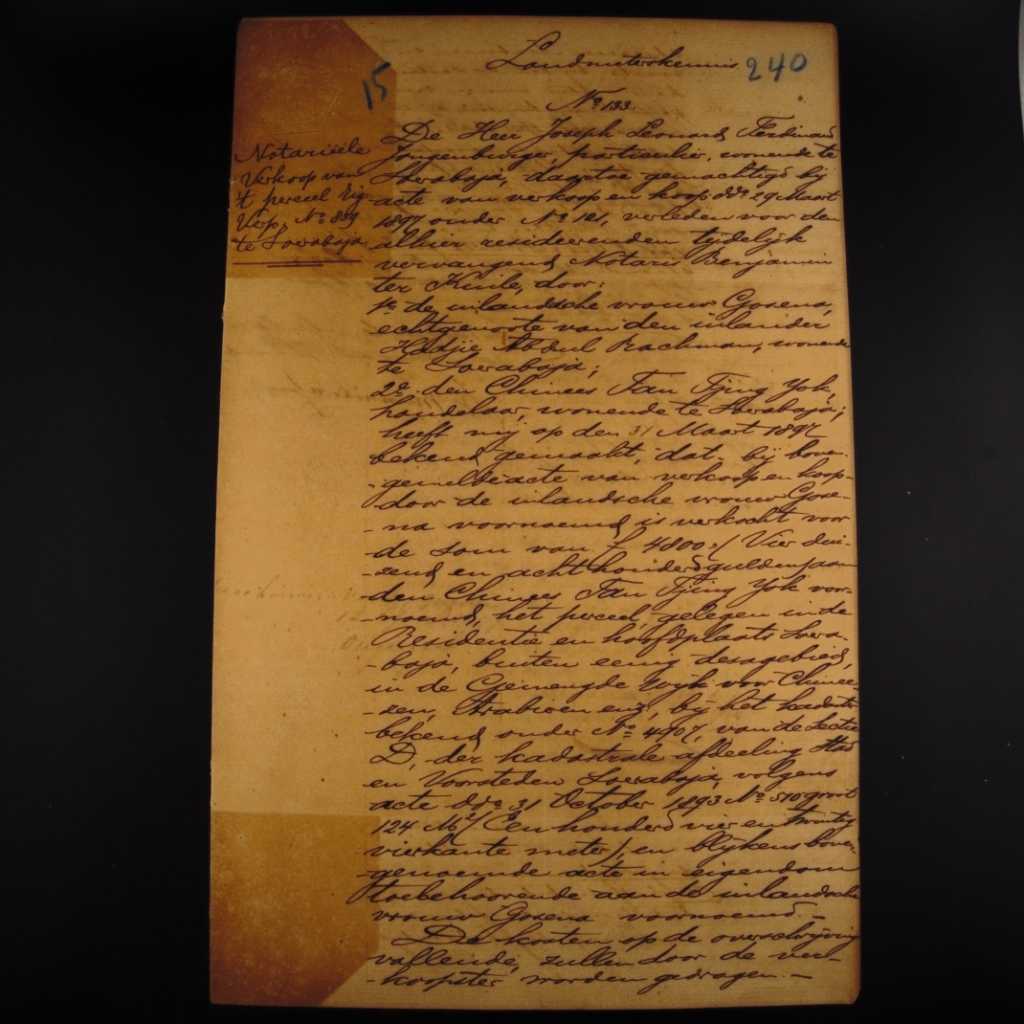 Landmeterskennis
240
15
No 133.
Notariëele
Verkoop van
't perceel Eig.
Verp, No 859
te Soerabaja
De Heer Joseph Leonard Ferdinand
Jongenburger, particulier, wonende te
Soerabaja, daartoe gemachtigd bij
acte van verkoop en koop ddo 29 Maart
1897 onder No 121, verleden voor den
alhier resideerenden tijdelijk
vervangend Notaris Benjamin
ter Kuile, door:
1o de inlandsche vrouw Gosena,
echtgenoote van den inlander
Hadjie Abdul Rachman, wonende
te Soerabaja;
2o den Chinees Tan Tjing Yok,
handelaar, wonende te Soerabaja;
heeft mij op den 31 Maart 1897
bekend gemaakt, dat bij boven-
-gemelde acte van verkoop en koop
door de inlandsche vrouw Gose-
-na voornoemd is verkocht voor
de som van f 4800.,/ Vier dui-
-zend en acht honderd gulden, aan
den Chinees Tan Tjing Yok voor-
-noemd, het perceel, gelegen in de
Residentie en hoofdplaats Soera-
-baja, buiten eenig dessagebied,
in de Gemengde Wijk voor Chinee-
-zen, Arabieren enz, bij het kadaster
bekend onder No 4907, van de Sectie
D, der kadastrale afdeeling Stad
en Voorsteden Soerabaja, volgens
acte ddo 31 October 1893 No 510 groot
124 M2/ Een honderd vier en twintig
vierkante meter/, en blijkens boven-
-genoemde acte in eigendom
toebehoorende aan de inlandsche
vrouw Gosena voornoemd. -
De kosten op de overschrijving
vallende, zullen door de ver-
-koopster worden gedragen. -